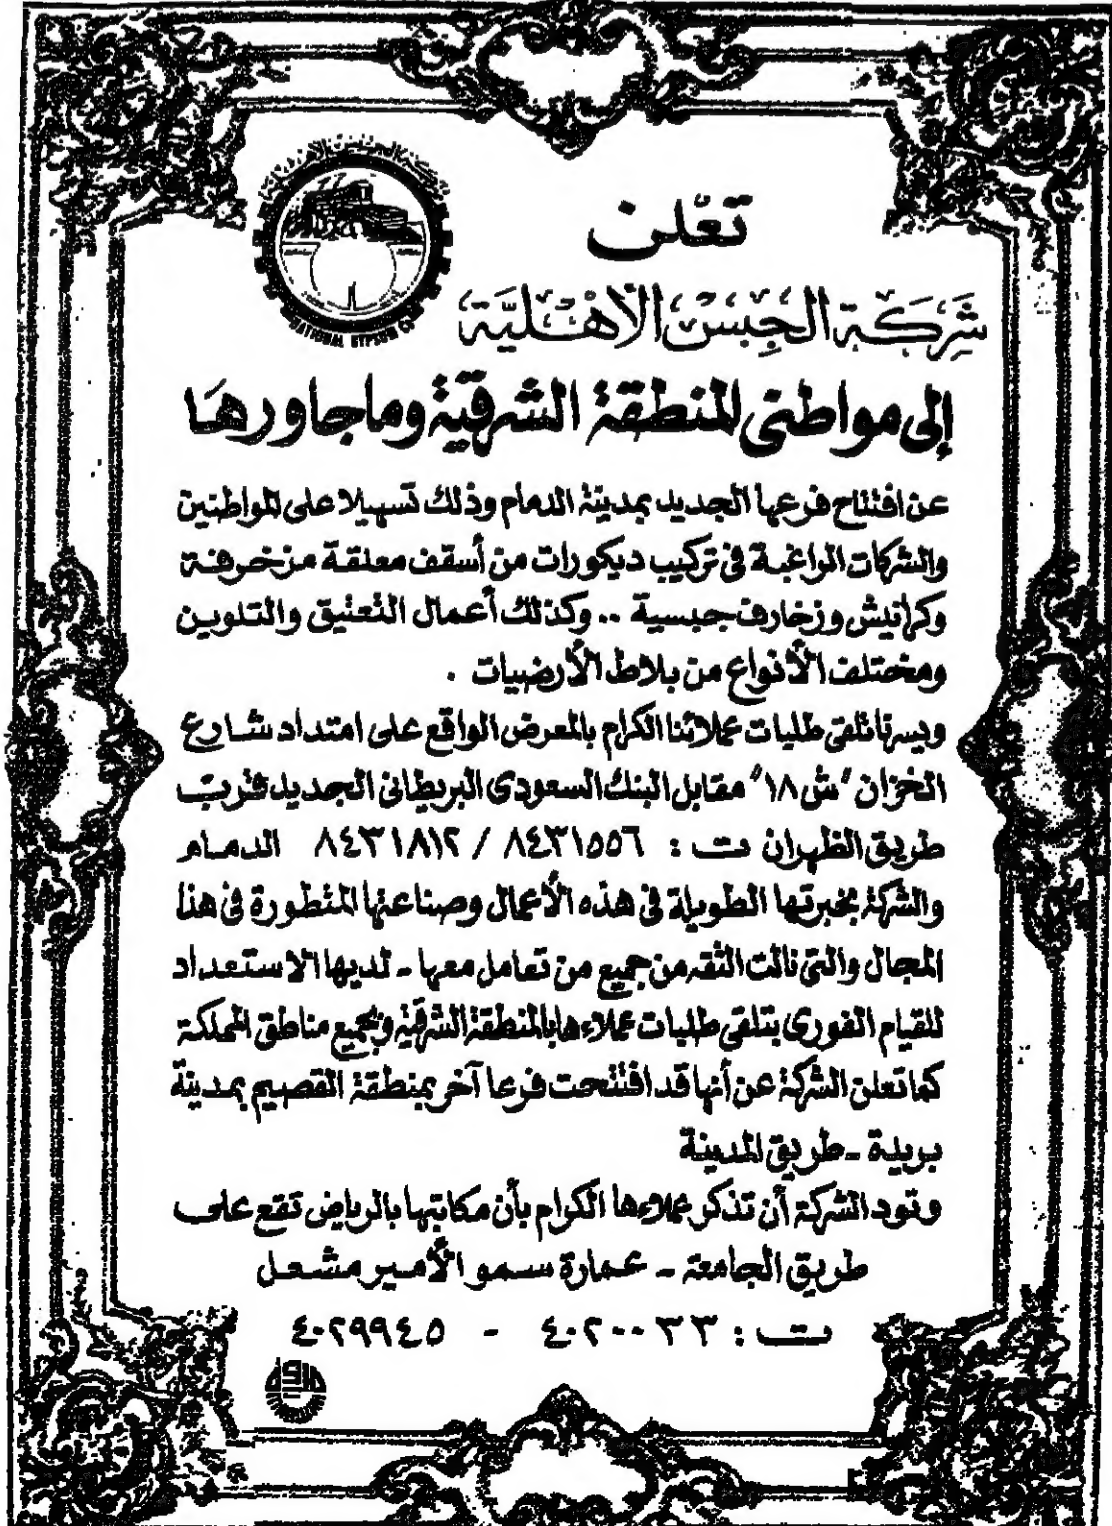 تعلن
شركة الجبس الأهلية
NATIONAL GYPSUM CO.
إلى مواطنى المنطقة الشرقية وما جاورها
عن افتتاح فرعها الجديد بمدينة الدمام وذلك تسهيلا على المواطنين
والشركات الراغبة فى تركيب ديكورات من أسقف معلقة مزخرفة
وكرانيش وزخارف جبسية .. وكذلك أعمال التعتيق والتلوين
ومختلف الأنواع من بلاط الأرضيات .
ويسرنا تلقى طلبات عملائنا الكرام بالمعرض الواقع على امتداد شارع
الخزان "ش ١٨" مقابل البنك السعودى البريطانى الجديد قرب
طريق الظهران ت : ٨٤٣١٥٥٦ / ٨٤٣١٨١٢ الدمام
والشركة بخبرتها الطويلة فى هذه الأعمال وصناعتها المتطورة فى هذا
المجال والتى نالت الثقه من جميع من تعامل معها - لديها الاستعداد
للقيام الفورى بتلقى طلبات عملاءها بالمنطقة الشرقية وبجميع مناطق المملكة
كما تعلن الشركة عن أنها قد افتتحت فرعا آخر بمنطقة القصيم بمدينة
بريدة - طريق المدينة
وتود الشركة أن تذكر عملاءها الكرام بأن مكاتبها بالرياض تقع على
طريق الجامعة - عمارة سمو الأمير مشعل
ت : ٤٠٢٠٠٣٣ - ٤٠٢٩٩٤٥